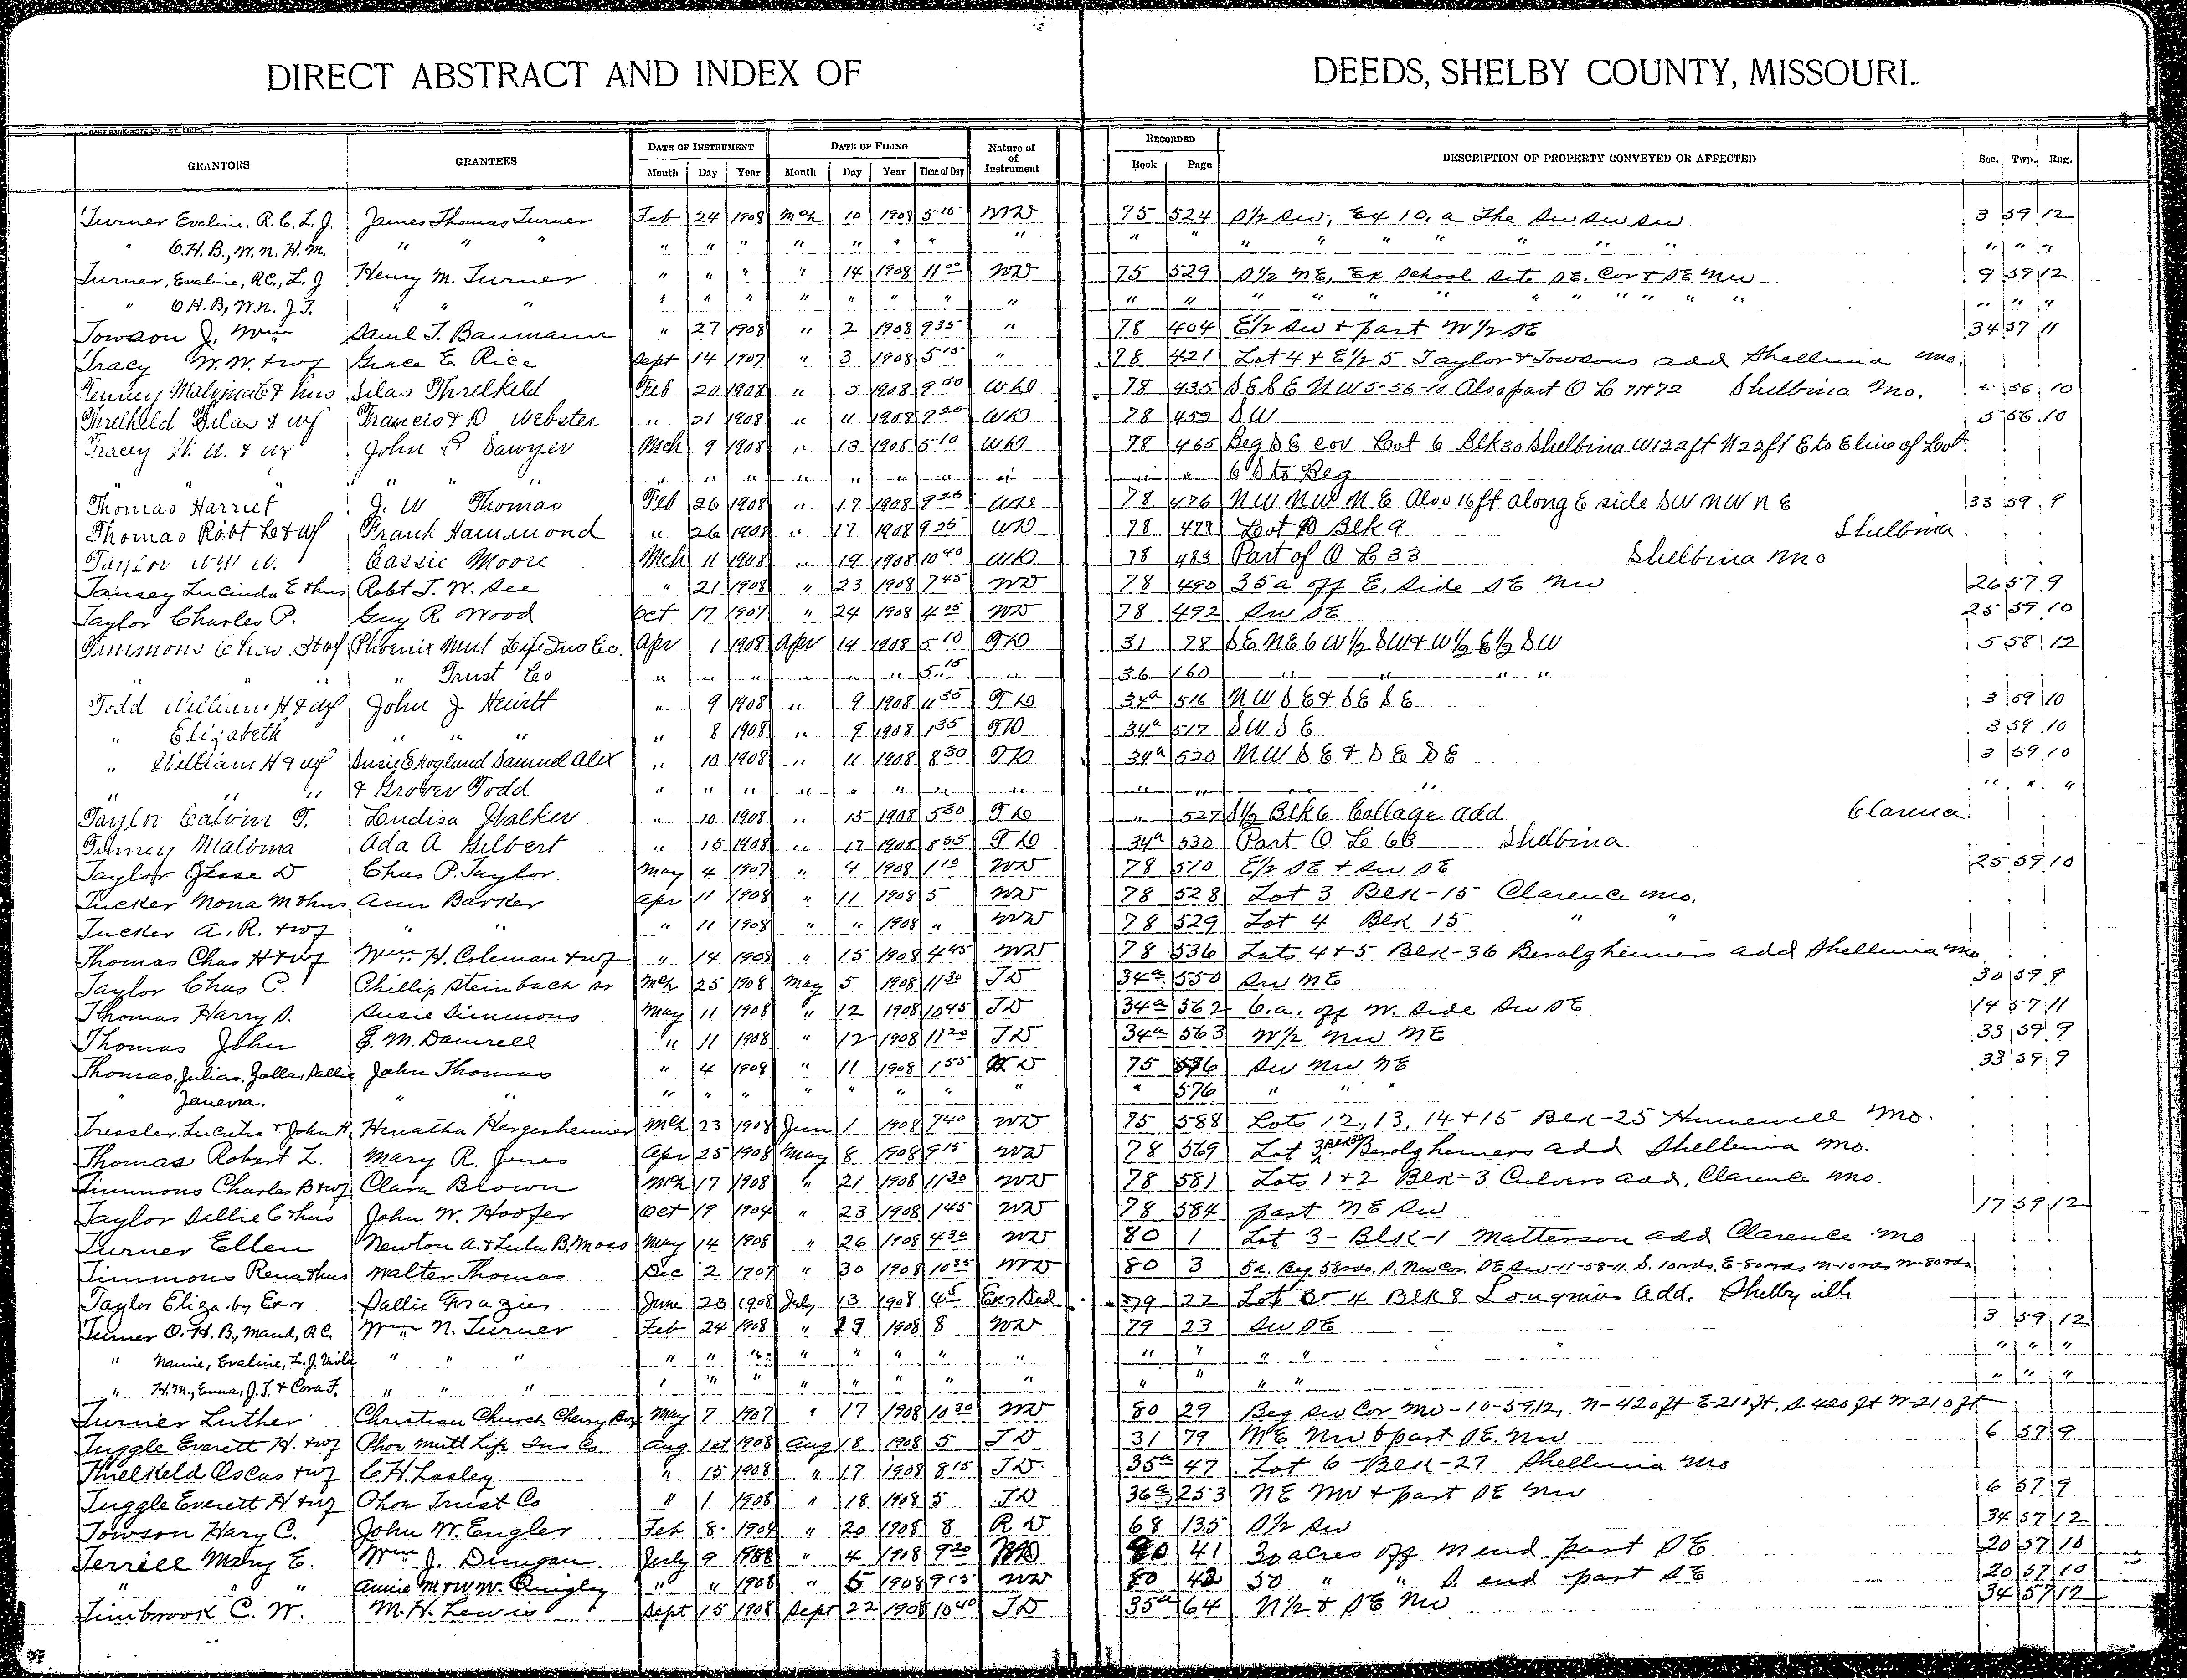 DIRECT ABSTRACT AND INDEX OF DEEDS, SHELBY COUNTY, MISSOURI.
GRANTORS GRANTEES DATE OF INSTRUMENT DATE OF FILING Nature of of Instrument RECORDED DESCRIPTION OF PROPERTY CONVEYED OR AFFECTED Sec. Twp. Rng.
Month Day Year Month Day Year Time of Day Book Page
Turner Evaline, R. C, L. J. James Thomas Turner Feb 24 1908 Mch 10 1908 5 15 WD 75 524 S1/2 Sw; Ex 10. a The Sw Sw Sw 3 59 12
" O. H. B., W. N. H. M. " " " " " " " " " " " " " " " " " " " " " " "
Turner, Evaline, RC, L. J Henry M. Turner " " " " 14 1908 11 00 WD 75 529 S1/2 NE, Ex School Site SE. Cor & SE NW 9 59 12
" O H. B, W. N. J T. " " " " " " " " " " " " " " " " " " " " " " " " "
Towson J. Wm Saml T. Baumann " 27 1908 " 2 1908 9 35 " 78 404 E1/2 Sw & part W 1/2 SE 34 57 11
Tracy W. W. & wf Grace E. Rice Sept 14 1907 " 3 1908 5 15 " 78 421 Lot 4 & E1/2 5 Taylor & Towsons add Shelbina Mo.
Silas Threlkeld Feb 20 1908 " 5 1908 9 00 WD 78 435 SE SE NW 5-56-10 Also part O L 71 & 72 Shelbina Mo. 56 10
Threlkeld Silas & wf Francis & D Webster " 21 1908 " 11 1908 9 20 WD 78 452 SW 5 56 10
Tracey W. W. & wf John P Sawyer Mch 9 1908 " 13 1908 5 10 WD 78 465 Beg SE cor Lot 6 Blk 30 Shelbina W 122 ft N 22 ft E to E line of Lot
" " " " " " " " " " " " " 6 S to Beg
Thomas Harriet J. W Thomas Feb 26 1908 " 17 1908 9 20 WD 78 476 NW NW NE Also 16 ft along E side SW NW NE 33 59 9
Thomas Robt L & wf Frank Hammond " 26 1908 " 17 1908 9 25 WD 78 Lot Blk 9 Shelbina
Taylor Cassie Moore Mch 11 1908 " 19 1908 10 40 WD 78 483 Part of O L 33 Shelbina Mo
Tansey Lucinda E & hus Robt T. W. See " 21 1908 " 23 1908 7 45 WD 78 490 35 a off E. Side SE NW 26 57 9
Taylor Charles P. Guy R Wood Oct 17 1907 " 24 1908 4 05 WD 78 492 SW SE 25 59 10
Timmons & wf Phoenix Mut Life Ins Co. Apr 1 1908 Apr 14 1908 5 10 TD 31 78 SE NE 6 W 1/2 SW & W 1/2 E 1/2 SW 5 58 12
" " " Trust Co " " " " " " 5 15 36 160 " " " "
Todd William H & wf John J Hewitt " 9 1908 " 9 1908 11 35 TD 34a 516 NW SE & SE SE 3 59 10
" Elizabeth " " " " 8 1908 " 9 1908 1 35 TD 34a 517 SW SE 3 59 10
" William H & wf Susie E Hogland Samuel Alex " 10 1908 " 11 1908 8 30 TD 34a 520 NW SE & SE SE 3 59 10
" " " & Grover Todd " " " " " " " " " " " " "
Taylor Calvin T. Ludisa Walker " 10 1908 " 15 1908 5 30 TD " 527 S1/2 Blk 6 Collage add Clarence.
Malvina Ada A Gilbert " 15 1908 " 17 1908 8 55 TD 34a 530 Part O L 66 Shelbina
Taylor Jesse D Chas P. Taylor May 4 1907 " 4 1908 1 10 WD 78 510 E1/2 SE & SW SE 25 59 10
Tucker Nona M & hus Ann Barker Apr 11 1908 " 11 1908 5 WD 78 528 Lot 3 Blk-15 Clarence Mo.
Tucker A. R. & wf " " " 11 1908 " " 1908 " WD 78 529 Lot 4 Blk 15 " "
Thomas Chas H & wf Wm. H. Coleman & wf " 14 1908 " 15 1908 4 45 WD 78 536 Lots 4 & 5 Blk-36 Beralzheimers add Shelbina Mo
Taylor Chas C. Phillip Steinbach sr Mch 25 1908 May 5 1908 11 30 TD 34a 550 SW NE 30 59 9
Thomas Harry S. Susie Simmons May 11 1908 " 12 1908 10 45 TD 34a 562 6. a. off W. side SW SE 14 57 11
Thomas John E. M. Damrell " 11 1908 " 12 1908 11 20 TD 34a 563 W1/2 NW NE 33 59 9
Thomas, Julia, Zolla, Sallie John Thomas " 4 1908 " 11 1908 1 55 WD 75 SW NW NE 33 59 9
" Janevra. " " " " " " " " " " " 576 " " "
Tressler, Lucinha & John H Hinatha Hergesheimer Mch 23 1908 June 1 1908 7 40 WD 75 588 Lots 12, 13, 14 & 15 Blk-25 Hunnewell Mo.
Thomas Robert L. Mary R. Jones Apr 25 1908 May 8 1908 9 15 WD 78 569 Lot 3 Beralzheimers add Shelbina Mo.
Timmons Charles B & wf Clara Brown Mch 17 1908 " 21 1908 11 30 WD 78 581 Lots 1 & 2 Blk-3 Culvers add, Clarence Mo.
Taylor Sallie C & hus John W. Hoofer Oct 19 1904 " 23 1908 1 45 WD 78 584 part NE SW 17 59 12
Turner Ellen Newton A. & Lulu B. Moss May 14 1908 " 26 1908 4 30 WD 80 1 Lot 3 - Blk-1 Matterson add Clarence Mo
Timmons Rena & hus Walter Thomas Dec 2 1907 " 30 1908 10 25 WD 80 3 5a. Beg 58 rds. S. NW Cor. SE SW-11-58-11. S. 10 rds. E-80 rds N-10 rds W-80 rds
Taylor Eliza. by Exr Sallie Frazier June 23 1908 July 13 1908 4 5 Exr Ded 79 22 Lot 3 - 4 Blk 8 Longmire Add. Shelbyville
Turner O. H. B, Maud, R C. Wm. N. Turner Feb 24 1908 " 23 1908 8 WD 79 23 SW SE 3 59 12
" Namie, Evaline, L. J. Viola " " " " " " " " " " " " " " " " " "
" H. M., Emma, J. T. & Cora F. " " " " " " " " " " " " " " " " "
Turner Luther Christian Church Cherry Box May 7 1907 " 17 1908 10 30 WD 80 29 Beg SW Cor NW-10-59-12, N-420 ft E-210 ft, S-420 ft W-210 ft
Tuggle Everett H. & wf Phox Mutl Life Ins Co. Aug 1st 1908 Aug 18 1908 5 TD 31 79 NE NW & part SE. NW 6 57 9
Thielkeld Oscar & wf C. H. Lasley " 15 1908 " 17 1908 8 15 TD 35a 47 Lot 6 - Blk-27 Shelbina Mo
Tuggle Everett H & wf Phox Trust Co " 1 1908 " 18 1908 5 TD 36a 253 NE NW & part SE NW 6 57 9
Towson Hary C. John W. Engler Feb 8 1904 " 20 1908 8 R D 68 135 S1/2 SW 34 57 12
Terrill Mary E. Wm J. Dungan July 9 1908 " 4 1908 9 20 WD 80 41 30 acres off N end part SE 20 57 10
" " " Annie M & W. W. Quigley " " 1908 " 5 1908 9 15 WD 80 42 50 " " S. end part SE 20 57 10
Timbrook C. W. M. H. Lewis Sept 15 1908 Sept 22 1908 10 40 TD 35a 64 N1/2 & SE NW 34 57 12